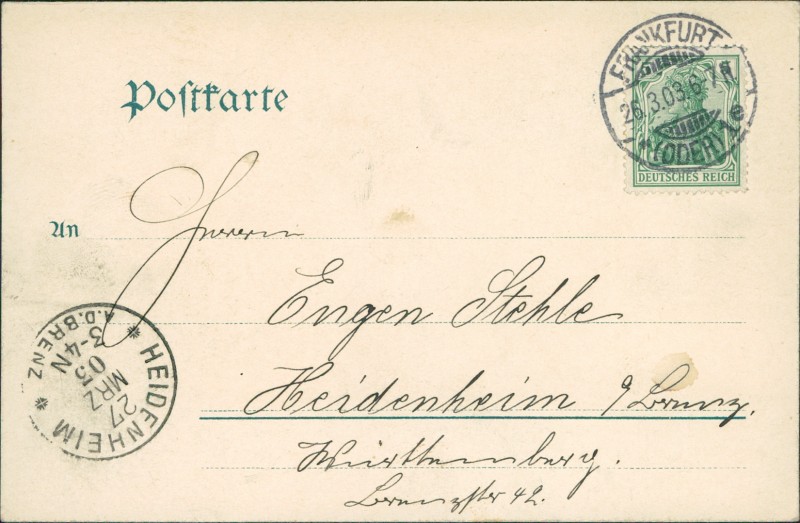 Postkarte
FRANKFURT
26.3.03.6-7N
*(ODER)1e
DEUTSCHES REICH
An
Herrn
Eugen Stehle
Heidenheim a/Brenz.
Württemberg.
Brenzstr 42.
HEIDENHEIM
A.D.BRENZ
27
MRZ
03
3-4N